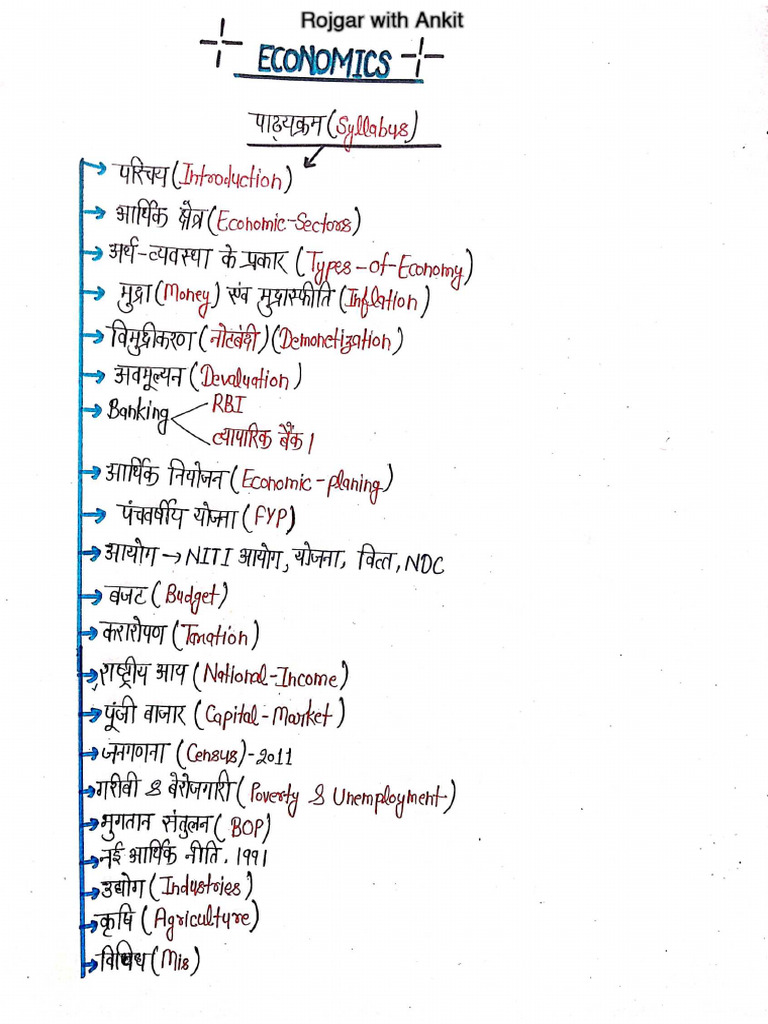 Rojgar with Ankit
ECONOMICS
पाठ्यक्रम (Syllabus)
परिचय (Introduction)
आर्थिक क्षेत्र (Economic-Sectors)
अर्थ-व्यवस्था के प्रकार (Types-of-Economy)
मुद्रा (Money) एंव मुद्रास्फीति (Inflation)
विमुद्रीकरण (नोटबंदी) (Demonetization)
अवमूल्यन (Devaluation)
Banking RBI
व्यापारिक बैंक।
आर्थिक नियोजन (Economic-planing)
पंचवर्षीय योजना (FYP)
आयोग → NITI आयोग, योजना, वित्त, NDC
बजट (Budget)
करारोपण (Taxation)
राष्ट्रीय आय (National-Income)
पूंजी बाजार (Capital-Market)
जनगणना (Census)-2011
गरीबी & बेरोजगारी (Poverty & Unemployment)
भुगतान संतुलन (BOP)
नई आर्थिक नीति. 1991
उद्योग (Industries)
कृषि (Agriculture)
विविध (Mis)